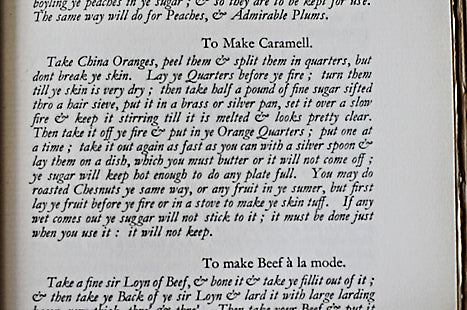 boyling ye peaches in ye sugar ; & so they are to be kept for use.
The same way will do for Peaches, & Admirable Plums.
To Make Caramell.
Take China Oranges, peel them & split them in quarters, but
dont break ye skin. Lay ye Quarters before ye fire ; turn them
till ye skin is very dry ; then take half a pound of fine sugar sifted
thro a hair sieve, put it in a brass or silver pan, set it over a slow
fire & keep it stirring till it is melted & looks pretty clear.
Then take it off ye fire & put in ye Orange Quarters ; put one at
a time ; take it out again as fast as you can with a silver spoon &
lay them on a dish, which you must butter or it will not come off ;
ye sugar will keep hot enough to do any plate full. You may do
roasted Chesnuts ye same way, or any fruit in ye sumer, but first
lay ye fruit before ye fire or in a stove to make ye skin tuff. If any
wet comes out ye suggar will not stick to it ; it must be done just
when you use it : it will not keep.
To make Beef à la mode.
Take a fine sir Loyn of Beef, & bone it & take ye fillit out of it ;
& then take ye Back of ye sir Loyn & lard it with large larding
thick, thro' & thro'. Then take your Beef & put it